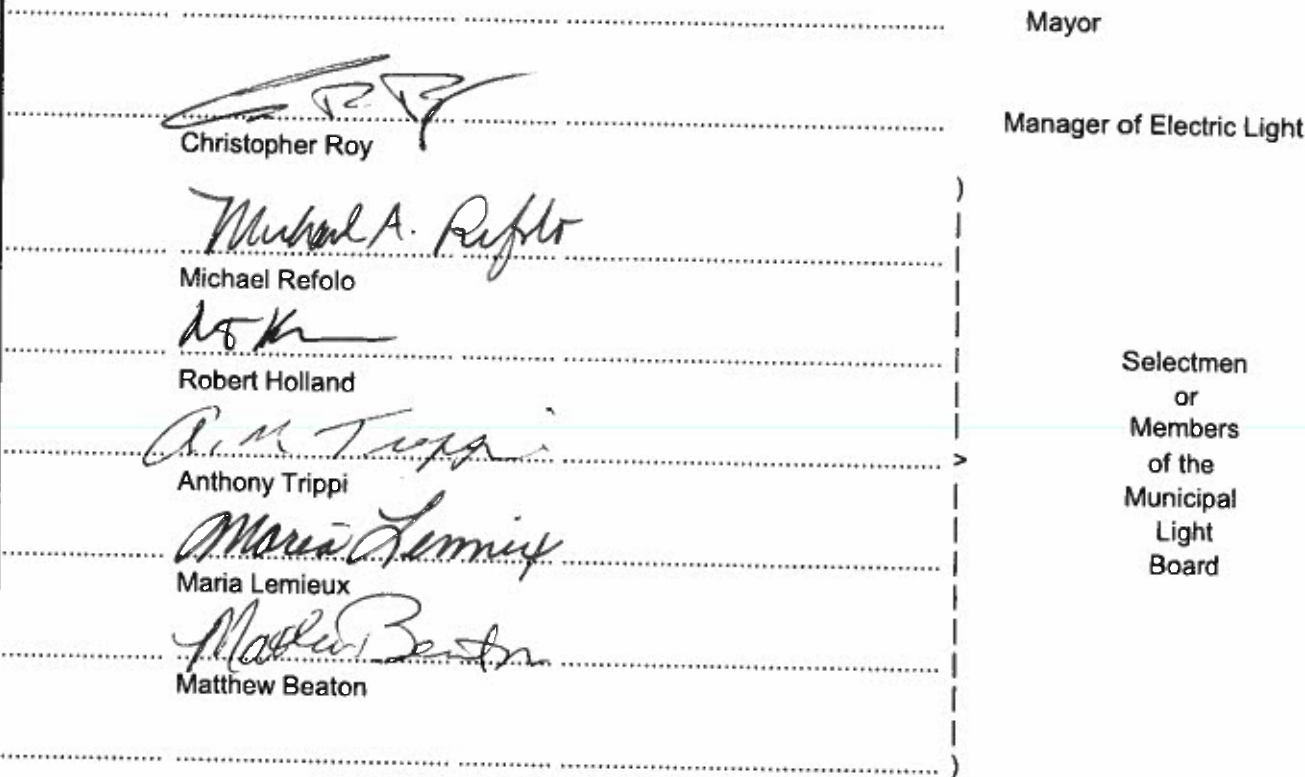 Mayor
Christopher Roy
Manager of Electric Light
Michael A. Refolo
Michael Refolo
Robert Holland
A. M Trippi
Anthony Trippi
Maria Lemieux
Maria Lemieux
Matthew Beaton
Matthew Beaton
Selectmen
or
Members
of the
Municipal
Light
Board